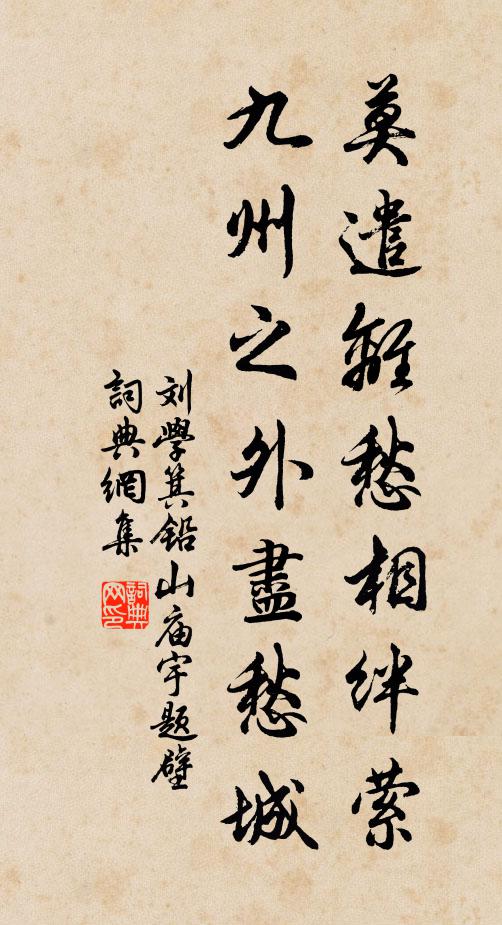 莫遣離愁相絆縈
九州之外盡愁城
刘學箕铅山庙宇题壁
詞典網集
詞典网印